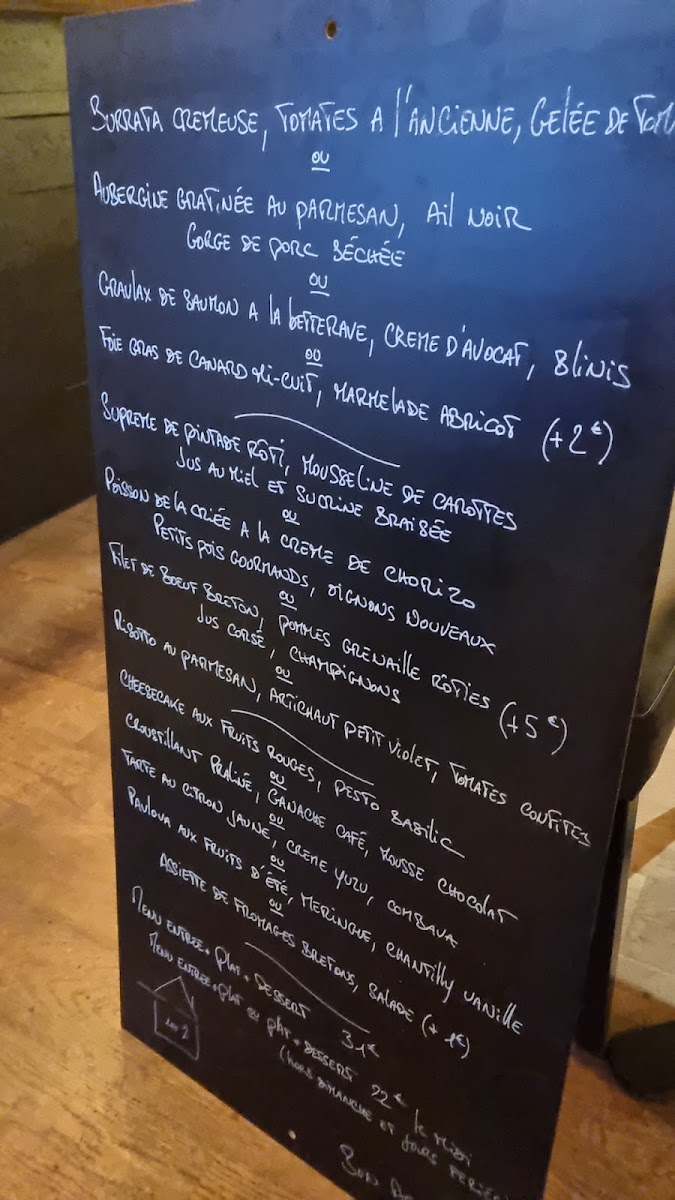 BURRATA CREMEUSE, TOMATES A l'ANCIENNE, GELÉE DE TOM
OU
AUBERGINE GRATINÉE AU PARMESAN, AIL NOIR
GORGE DE PORC SÉCHÉE
OU
GRAULAX DE SAUMON A LA BETTERAVE, CREME D'AVOCAT, BLINIS
OU
FOIE GRAS DE CANARD MI-CUIT, MARMELADE ABRICOT (+2€)
SUPREME DE PINTADE RÔTI, MOUSSELINE DE CAROTTES
JUS AU MIEL ET SUCRINE BRAISÉE
OU
POISSON DE LA CRIÉE A LA CREME DE CHORIZO
PETITS POIS GOURMANDS, OIGNONS NOUVEAUX
OU
FILET DE BOEUF BRETON, POMMES GRENAILLE RÔTIES (+5€)
JUS CORSÉ, CHAMPIGNONS
OU
RISOTTO AU PARMESAN, ARTICHAUT PETIT VIOLET, TOMATES CONFITES
CHEESECAKE AUX FRUITS ROUGES, PESTO BASILIC
OU
CROUSTILLANT PRALINÉ, GANACHE CAFÉ, MOUSSE CHOCOLAT
OU
TARTE AU CITRON JAUNE, CREME YUZU, COMBAVA
OU
PAVLOVA AUX FRUITS D'ÉTÉ, MERINGUE, CHANTILLY VANILLE
OU
ASSIETTE DE FROMAGES BRETONS, SALADE (+1€)
MENU ENTREE + PLAT + DESSERT 31€
MENU ENTREE + PLAT OU PLAT + DESSERT 22€ le midi
(HORS DIMANCHE ET JOURS FERIÉ
BON AP